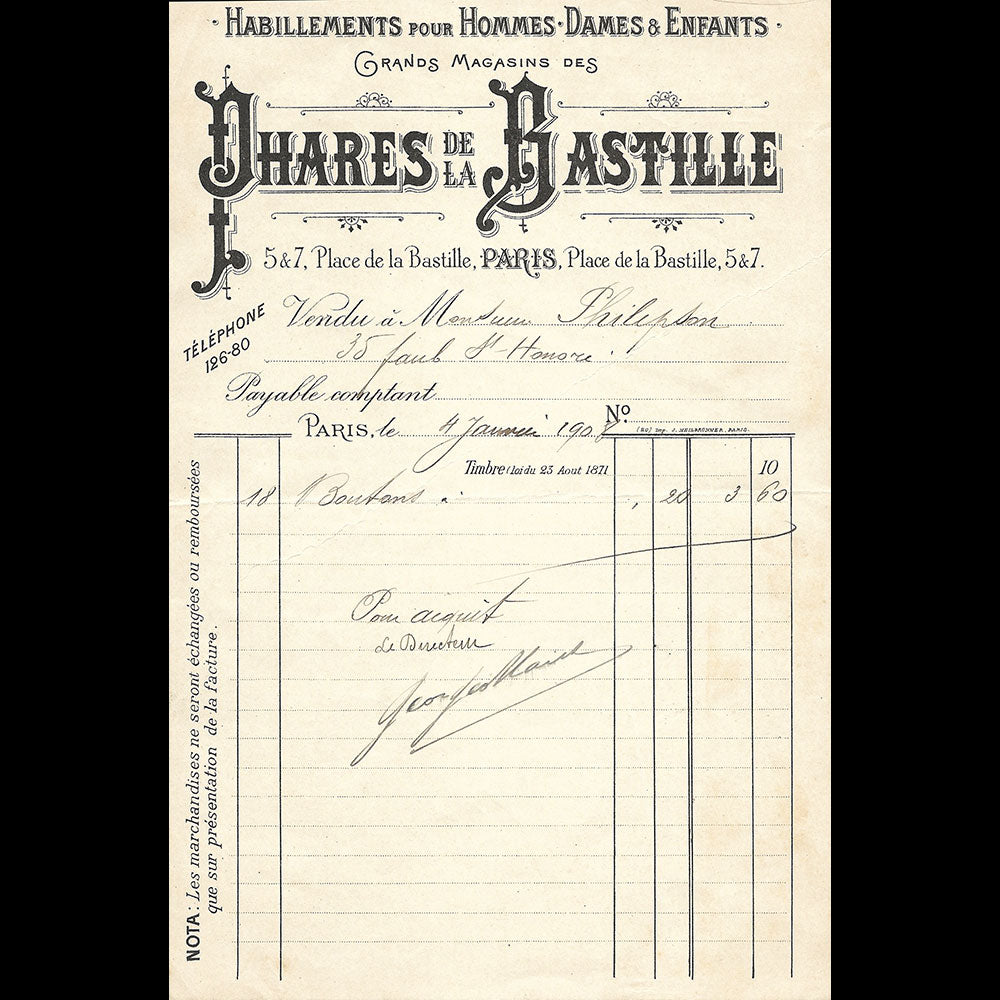 · HABILLEMENTS POUR HOMMES · DAMES & ENFANTS ·
GRANDS MAGASINS DES
PHARES DE LA BASTILLE
5 & 7, Place de la Bastille, PARIS, Place de la Bastille, 5 & 7.
TÉLÉPHONE
126-80
Vendu à Monsieur Philipson
35 faub St-Honoré
Payable comptant
PARIS, le 4 Janvier 1908 No
(80) Imp. J. HEILBRONNER, PARIS.
Timbre (loi du 23 Aout 1871 10
18 Boutons à , 20 3 60
Pour acquit
Le Directeur
NOTA: Les marchandises ne seront échangées ou remboursées
que sur présentation de la facture.